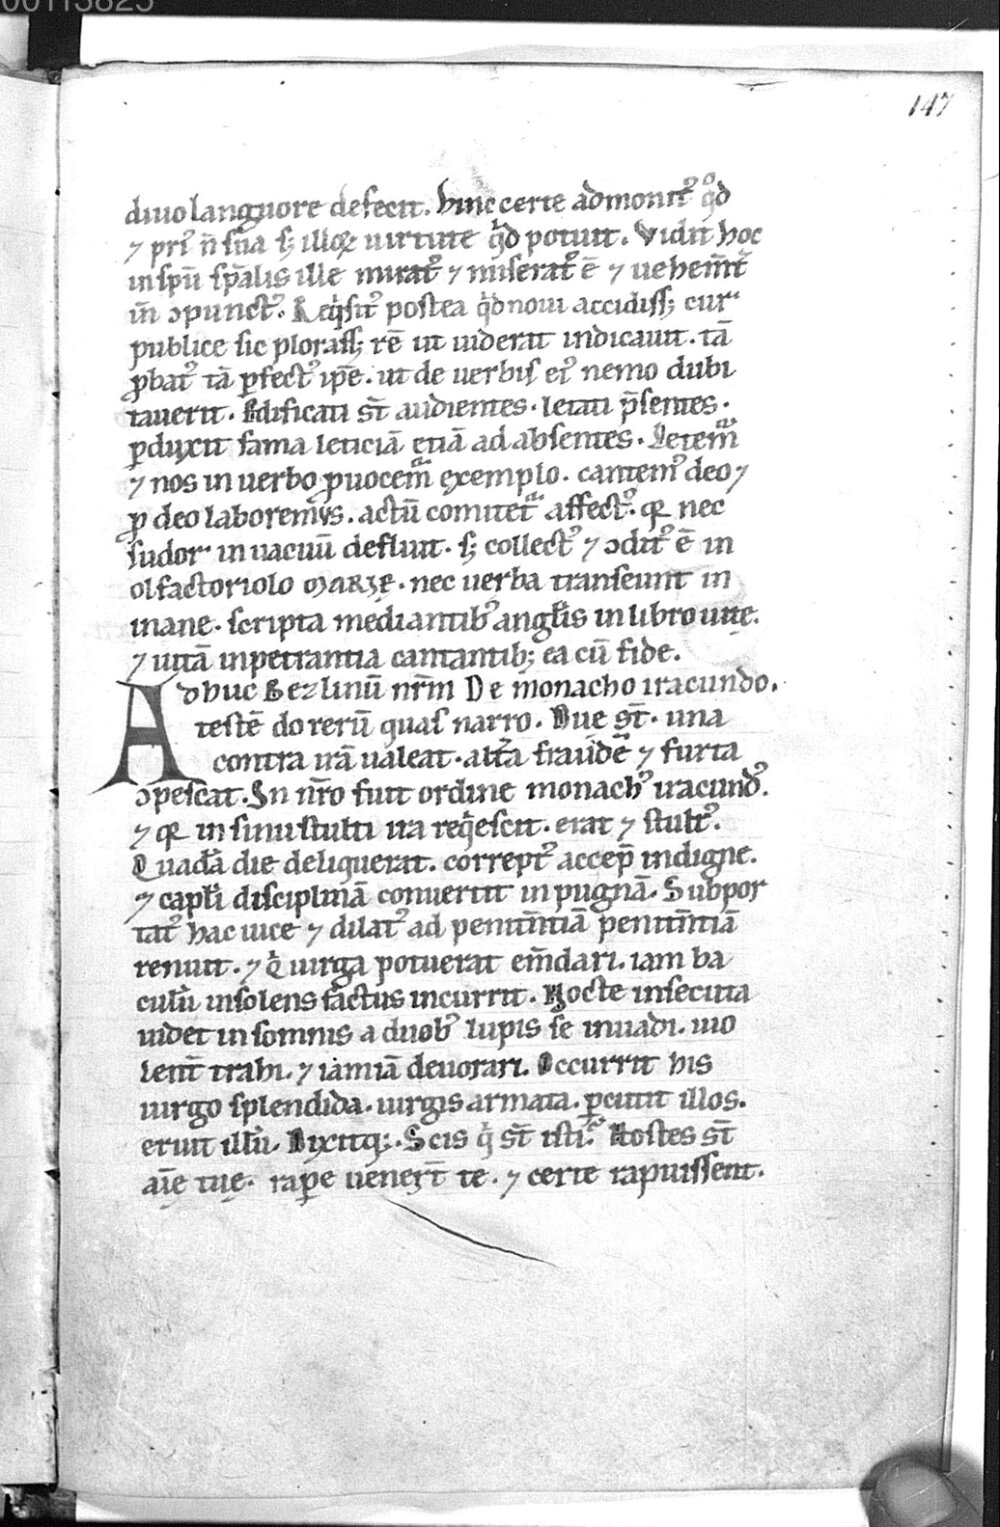 00113825
147
diuo languore defecit. hinc certe admonit᷒ qͦd
⁊ pri᷒ n̄ sua sꝫ illoꝝ uirtute qͥd potuit. Vidit hoc
in spū sp̄alis ille mirat᷒ ⁊ miserat᷒ ē ⁊ uehem̄t̄
in̄ ↄpunct᷒. Reqͥsit᷒ postea qͥd noui accidissꝫ cur
publice sic plorassꝫ rē ut uiderat indicauit. tā
ꝓbat᷒ tā ꝑfect᷒ ip̄e. ut de uerbis ei᷒ nemo dubi
tauerit. Edificati st̄ audientes. letati p̄sentes.
ꝑduxit fama leticiā etiā ad absentes. Letemͣ
⁊ nos in uerbo ꝓuocemͣ exemplo. cantem᷒ deo ⁊
ꝓ deo laborem᷒. actū comitetͣ affect᷒. qꝛ nec
sudor in uacuū defluit. sꝫ collect᷒ ⁊ ↄdit᷒ ē in
olfactoriolo MARIE. nec uerba transeunt in
inane. scripta mediantib᷒ angl̄is in libro uitę.
⁊ uitā inpetrantia cantantibꝫ ea cū fide.
Adhuc Bezlinū nr̄m De monacho iracundo.
testē do rerū quas narro. Due st̄. una
contra irā ualeat. alt̄a fraudē ⁊ furta
ↄpescat. In nr̄o fuit ordine monach᷒ iracund᷒.
⁊ qꝛ in sinu stulti ira reqͥescit. erat ⁊ stult᷒.
Quadā die deliquerat. corrept᷒ accep̄ indigne.
⁊ capl̄i disciplinā conuertit in pugnā. Subpor
tat᷒ hac uice ⁊ dilat᷒ ad penitn̄tiā penitn̄tiā
renuit. ⁊ qͥ uirga potuerat em̄dari. iam ba
culū insolens factus incurrit. Nocte insecuta
uidet in somnis a duob᷒ lupis se inuadi. uio
lent̄ trahi. ⁊ iamiā deuorari. Occurrit his
uirgo splendida. uirgis armata. ꝑcutit illos.
eruit illū. Dixitqꝫ. Scis qͥ st̄ isti? Hostes st̄
aīe tuę. raꝑe uenert̄ te. ⁊ certe rapuissent.